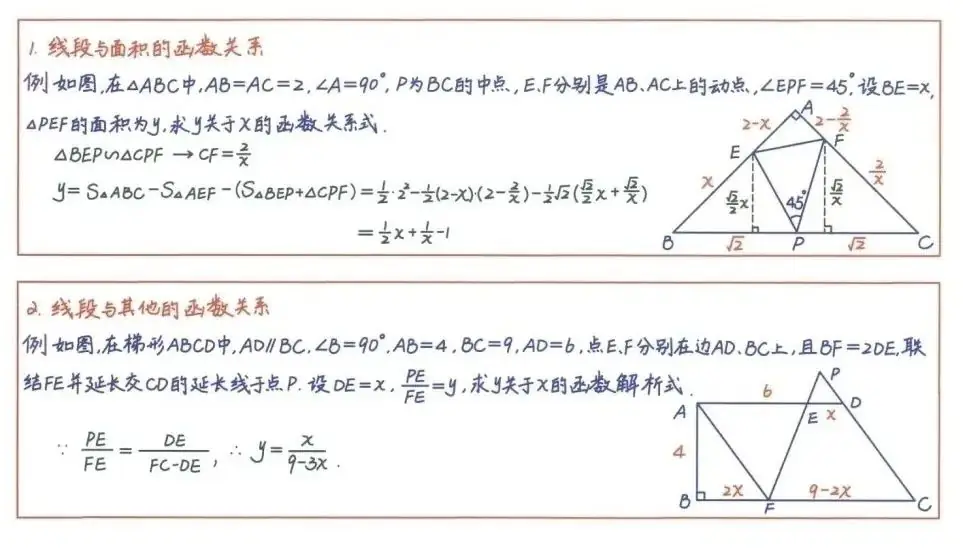 1. 线段与面积的函数关系
例 如图,在△ABC中,AB=AC=2,∠A=90°,P为BC的中点,E、F分别是AB、AC上的动点,∠EPF=45°,设BE=x,
△PEF的面积为y,求y关于x的函数关系式.
△BEP∽△CPF → CF=2/x
y=S△ABC-S△AEF-(S△BEP+△CPF)=1/2·2²-1/2(2-x)·(2-2/x)-1/2√2(√2/2x+√2/x)
=1/2x+1/x-1
A
2-x
2-2/x
E
F
x
2/x
√2/2x
45°
√2/x
B
√2
P
√2
C
2. 线段与其他的函数关系
例 如图,在梯形ABCD中,AD∥BC,∠B=90°,AB=4,BC=9,AD=6,点E、F分别在边AD、BC上,且BF=2DE,联
结FE并延长交CD的延长线于点P. 设DE=x, PE/FE=y,求y关于x的函数解析式.
∵ PE/FE=DE/FC-DE, ∴ y=x/9-3x.
P
6
A
E
x
D
4
B
2x
F
9-2x
C